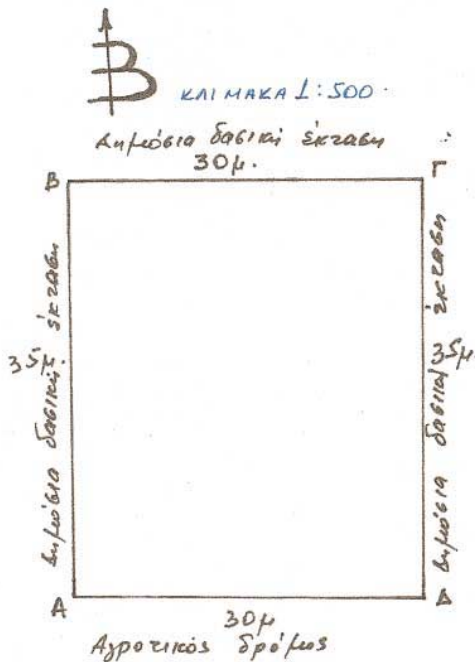 Β
ΚΛΙΜΑΚΑ 1:500.
Δημόσια δασική έκταση
30μ.
Β
Γ
Δημόσια δασική έκταση
35μ.
35μ
Δημόσια δασική έκταση
Α
Δ
30μ
Αγροτικός δρόμος